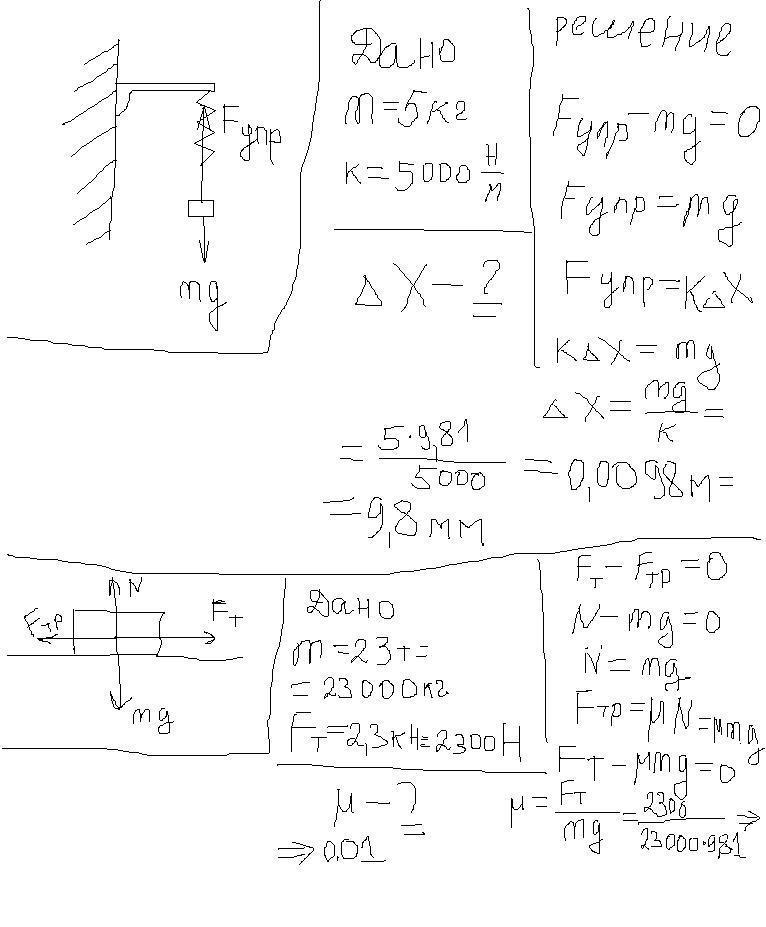 Fупр
mg
Дано
m=5кг
к=5000 Н/м
ΔX-?
решение
Fупр-mg=0
Fупр=mg
Fупр=кΔX
кΔX=mg
ΔX=mg/к=
=5·9,81/5000=0,0098м=
=9,8мм
N
Fтр
Fт
mg
Дано
m=23т=
=23000кг
Fт=2,3кН=2300Н
μ-?
Fт-Fтр=0
N-mg=0
N=mg
Fтр=μN=μmg
Fт-μmg=0
μ=Fт/mg=2300/23000·9,81⇒
⇒0,01